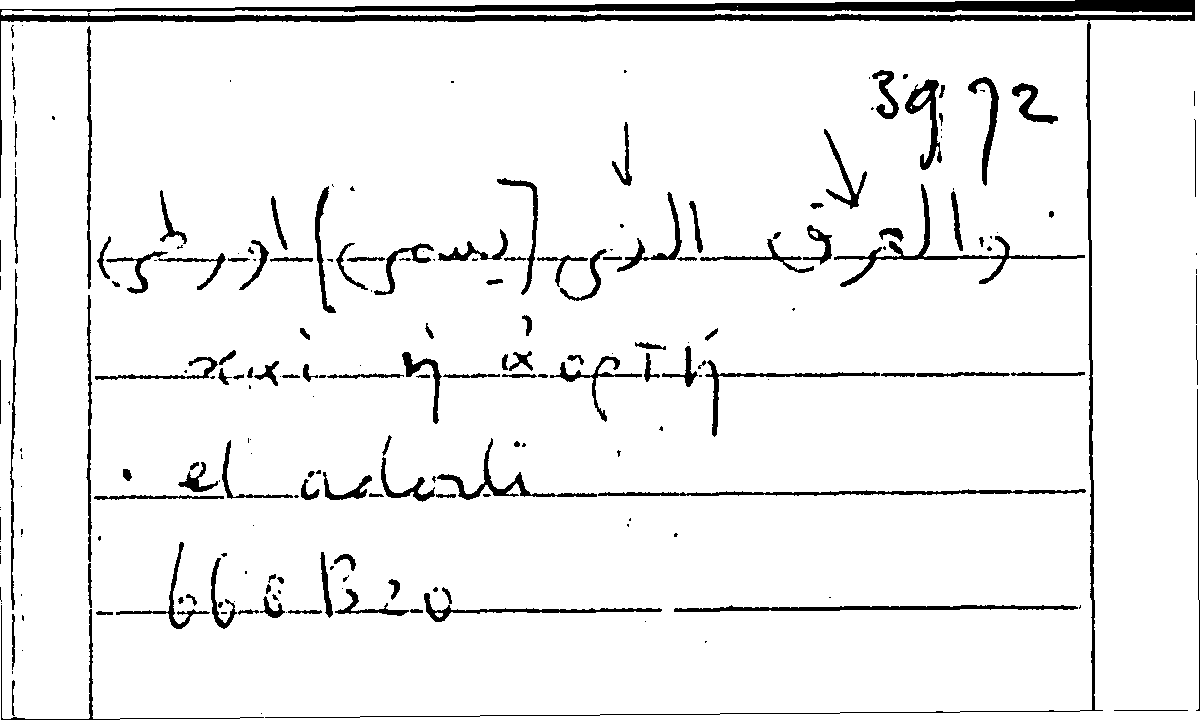 3972
والعرق الذى [يسمى] اورطى
καὶ ἡ ἀορτή
. et adorti
668 B 20